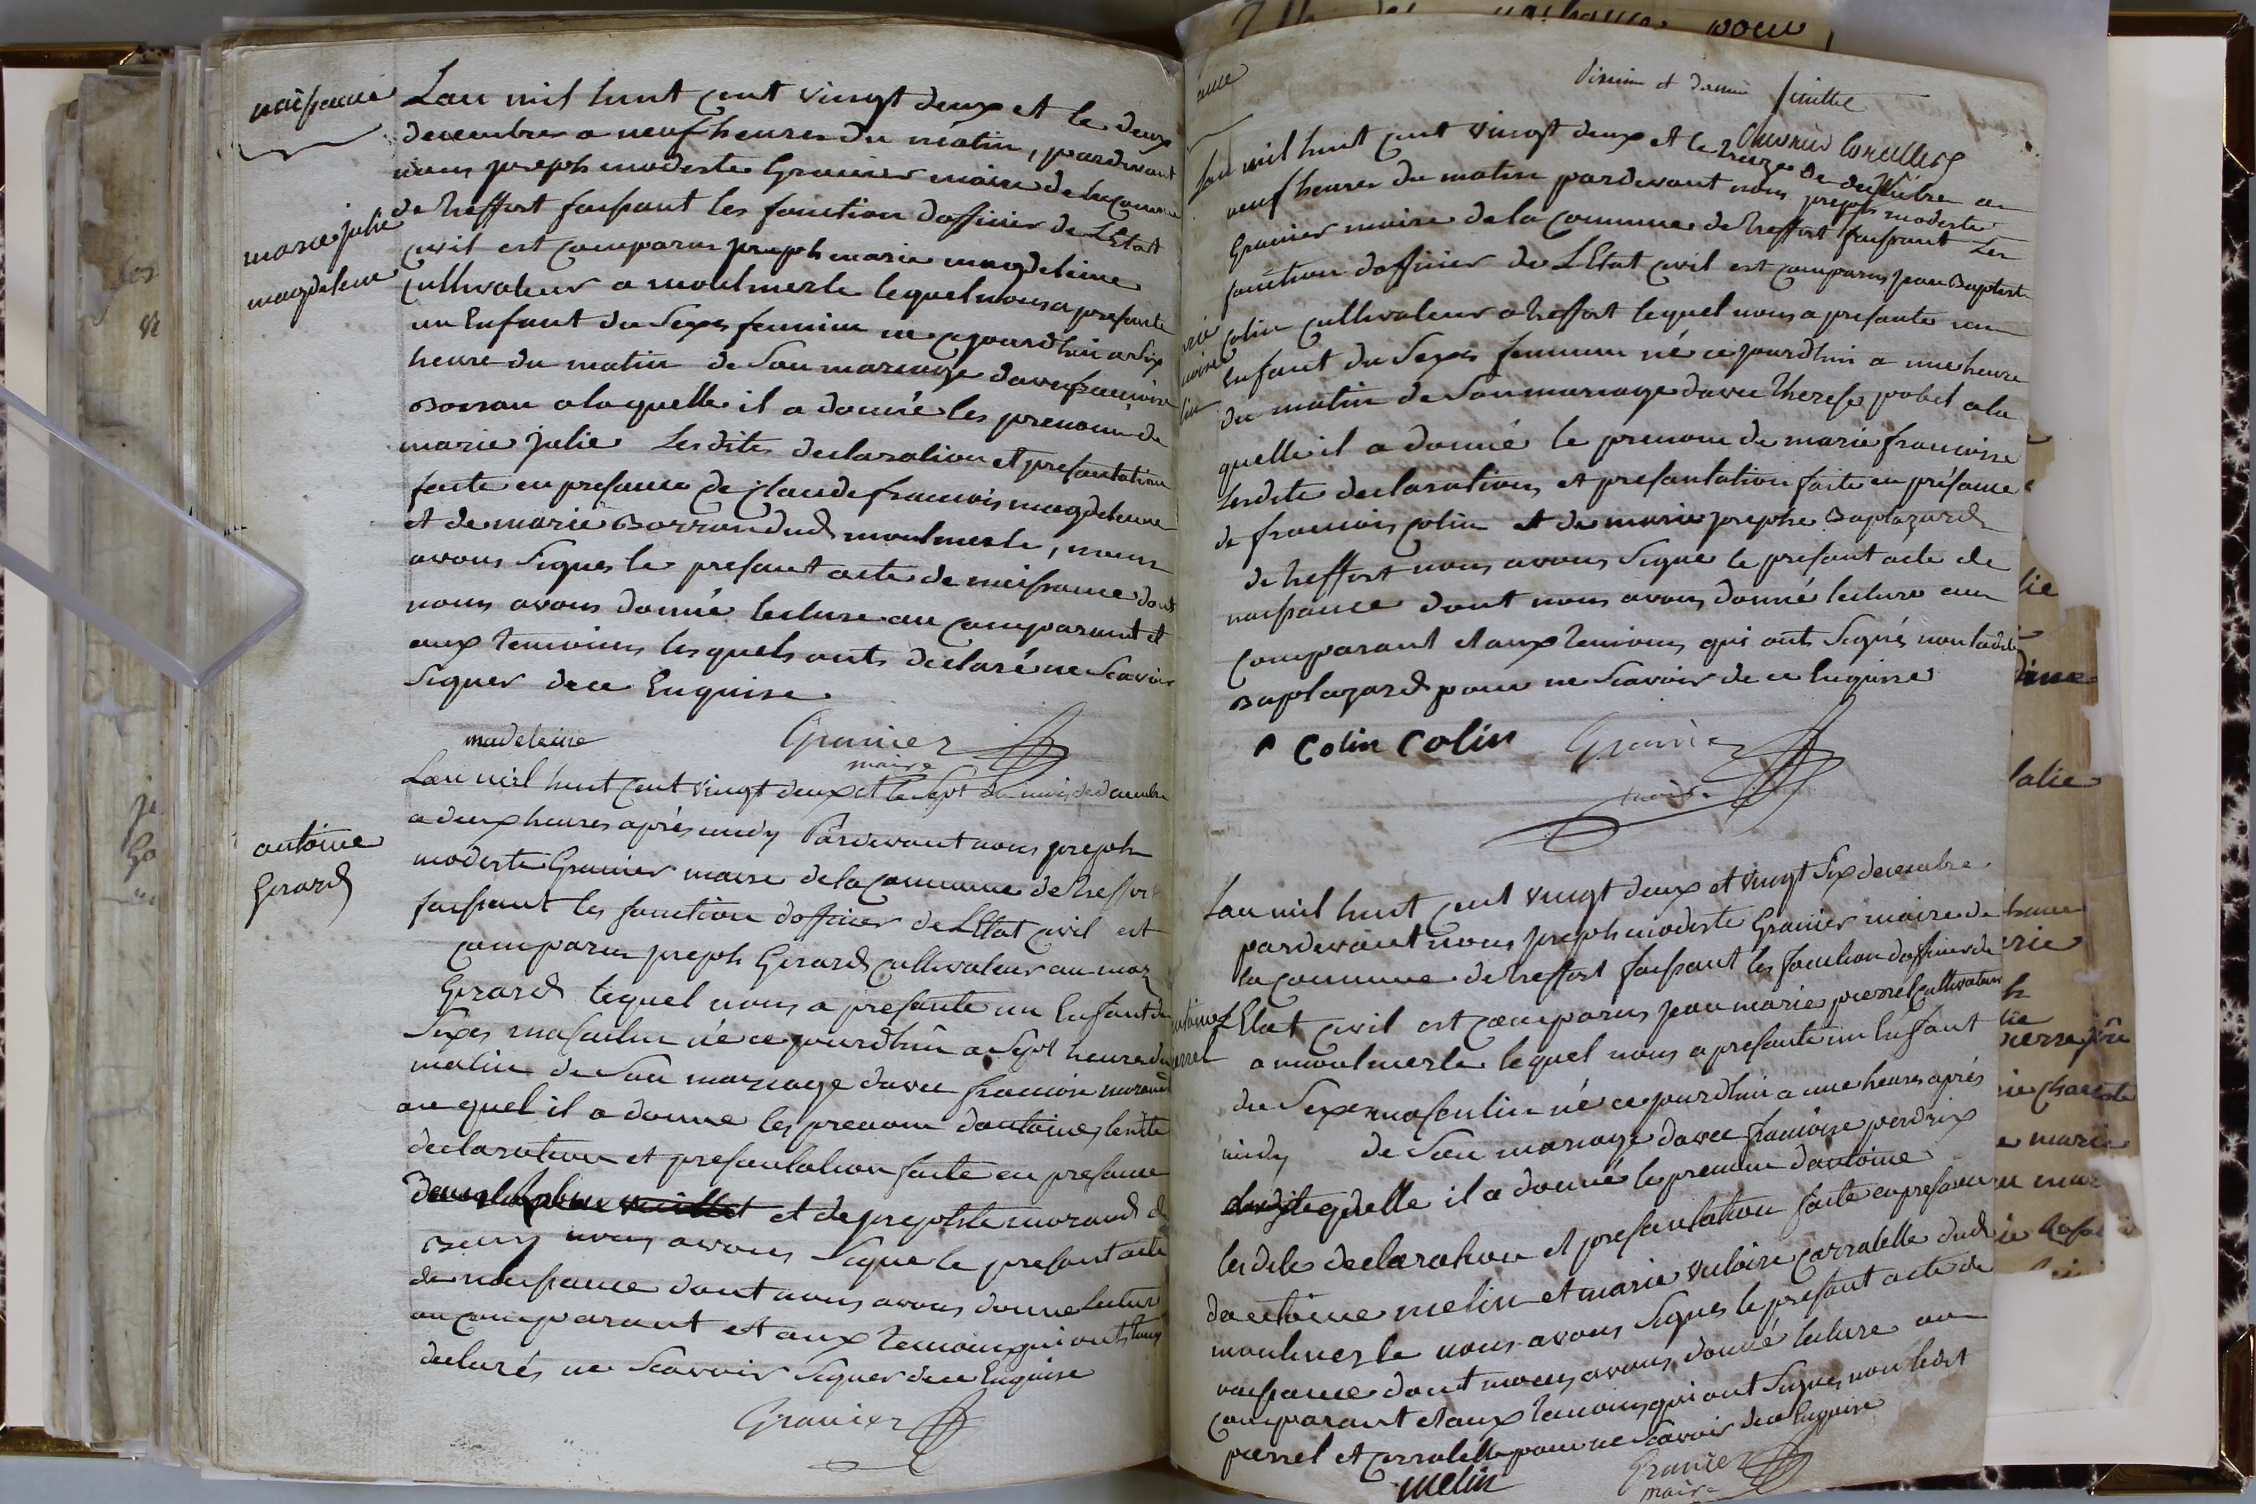 naissance
Lan mil huit cent vingt deux et le deux
decembre a neuf heures du matin, pardevant
nous joseph modeste Granier maire de la commune
de treffort faisant les fonction dofficier de LEtat
marie julie
magdeleine
civil est comparus joseph marie magdeleine
cultivateur a moulmerle lequel nous a presante
un Enfant du Sexes feminin ne cejourdhui a Six
heure du matin de Son mariage davec francoise
Borron a la quelle il a donné les prenom de
marie julie Lesdites declaration et presantation
faite en presance de claude francois magdeleine
et de marie Borron dud moulmerle, nous
avons Signes le presant acte de naissance dont
nous avons donné lecture au comparant et
aux temoins lesquels onts déclaré ne Scavoir
Signer dece Enquise
madeleine Granier
maire
Lan mil huit cent vingt deux et le Sept du mois de decembre
a deux heures après midy Pardevant nous joseph
antoine
Girard
modeste Granier maire de la commune de treffort
faisant les fonction dofficier de LEtat civil est
comparu joseph Girard cultivateur au maz
Girard lequel nous a presante un Enfant du
Sexes masculin né ce jourdhui a Sept heure du
matin de Son mariage davec francoise morand
au quel il a donne les prenom dantoine, lesdite
declaration et presantation faite en presance
et de joseph morand de
nous avons Signe le presant acte
de naissance dont nous avons donne lecture
au comparant et aux temoins qui onts tous
declarés ne Scavoir Signer dece Enquise
Granier
Lan mil huit cent vingt deux et le treize de decembre a
neuf heures du matin pardevant nous joseph modeste
Granier maire de la commune de treffort faisant Les
fonction dofficier de LEtat civil est comparus jean Baptiste
colin cultivateur a treffort lequel nous a presante un
Enfant du Sexes feminin né ce jourdhui a une heure
du matin de Son mariage davec therese pobel a la
quelle il a donné le prenom de marie francoise
Lesdite declaration et presantation faite en présance
de francois colin et de marie josephe Baplazard
de treffort nous avons Signé le presant acte de
naissance dont nous avons donné lecture au
comparant et aux temoins qui onts Signés non ladite
Baplazard pour ne Scavoir de ce Enquise
Colin Colin Granier
maire
Lan mil huit cent vingt deux et vingt Six decembre
pardevant nous joseph modeste Granier maire de
la commune de treffort faisant les fonction dofficier de
LEtat civil est comparus jean marie pierrel cultivateur
a moulmerle lequel nous a presante un Enfant
du Sexes masculin né ce jourdhui a une heures après
midy de Son mariage davec francoise perdrix
quelle il a donné le prenom dantoine
lesdite declaration et presantation faite en presance
dantoine melin et marie victoire carratelle dud
moulmerle nous avons Signes le presant acte de
naissance dont nous avons donné lecture au
comparant et aux temoins qui ont Signes non ledit
pierrel et carratelle pour ne Scavoir dece Enquise
melin Granier
maire